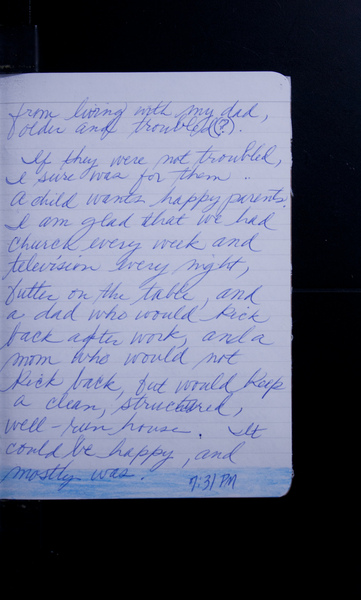 from living with my dad,
older and troubled(?).
If they were not troubled,
I sure was for them.
A child wants happy parents.
I am glad that we had
church every week and
television every night,
butter on the table, and
a dad who would kick
back after work, and a
mom who would not
kick back, but would keep
a clean, structured,
well-run house. It
could be happy, and
mostly was.
7:31 PM